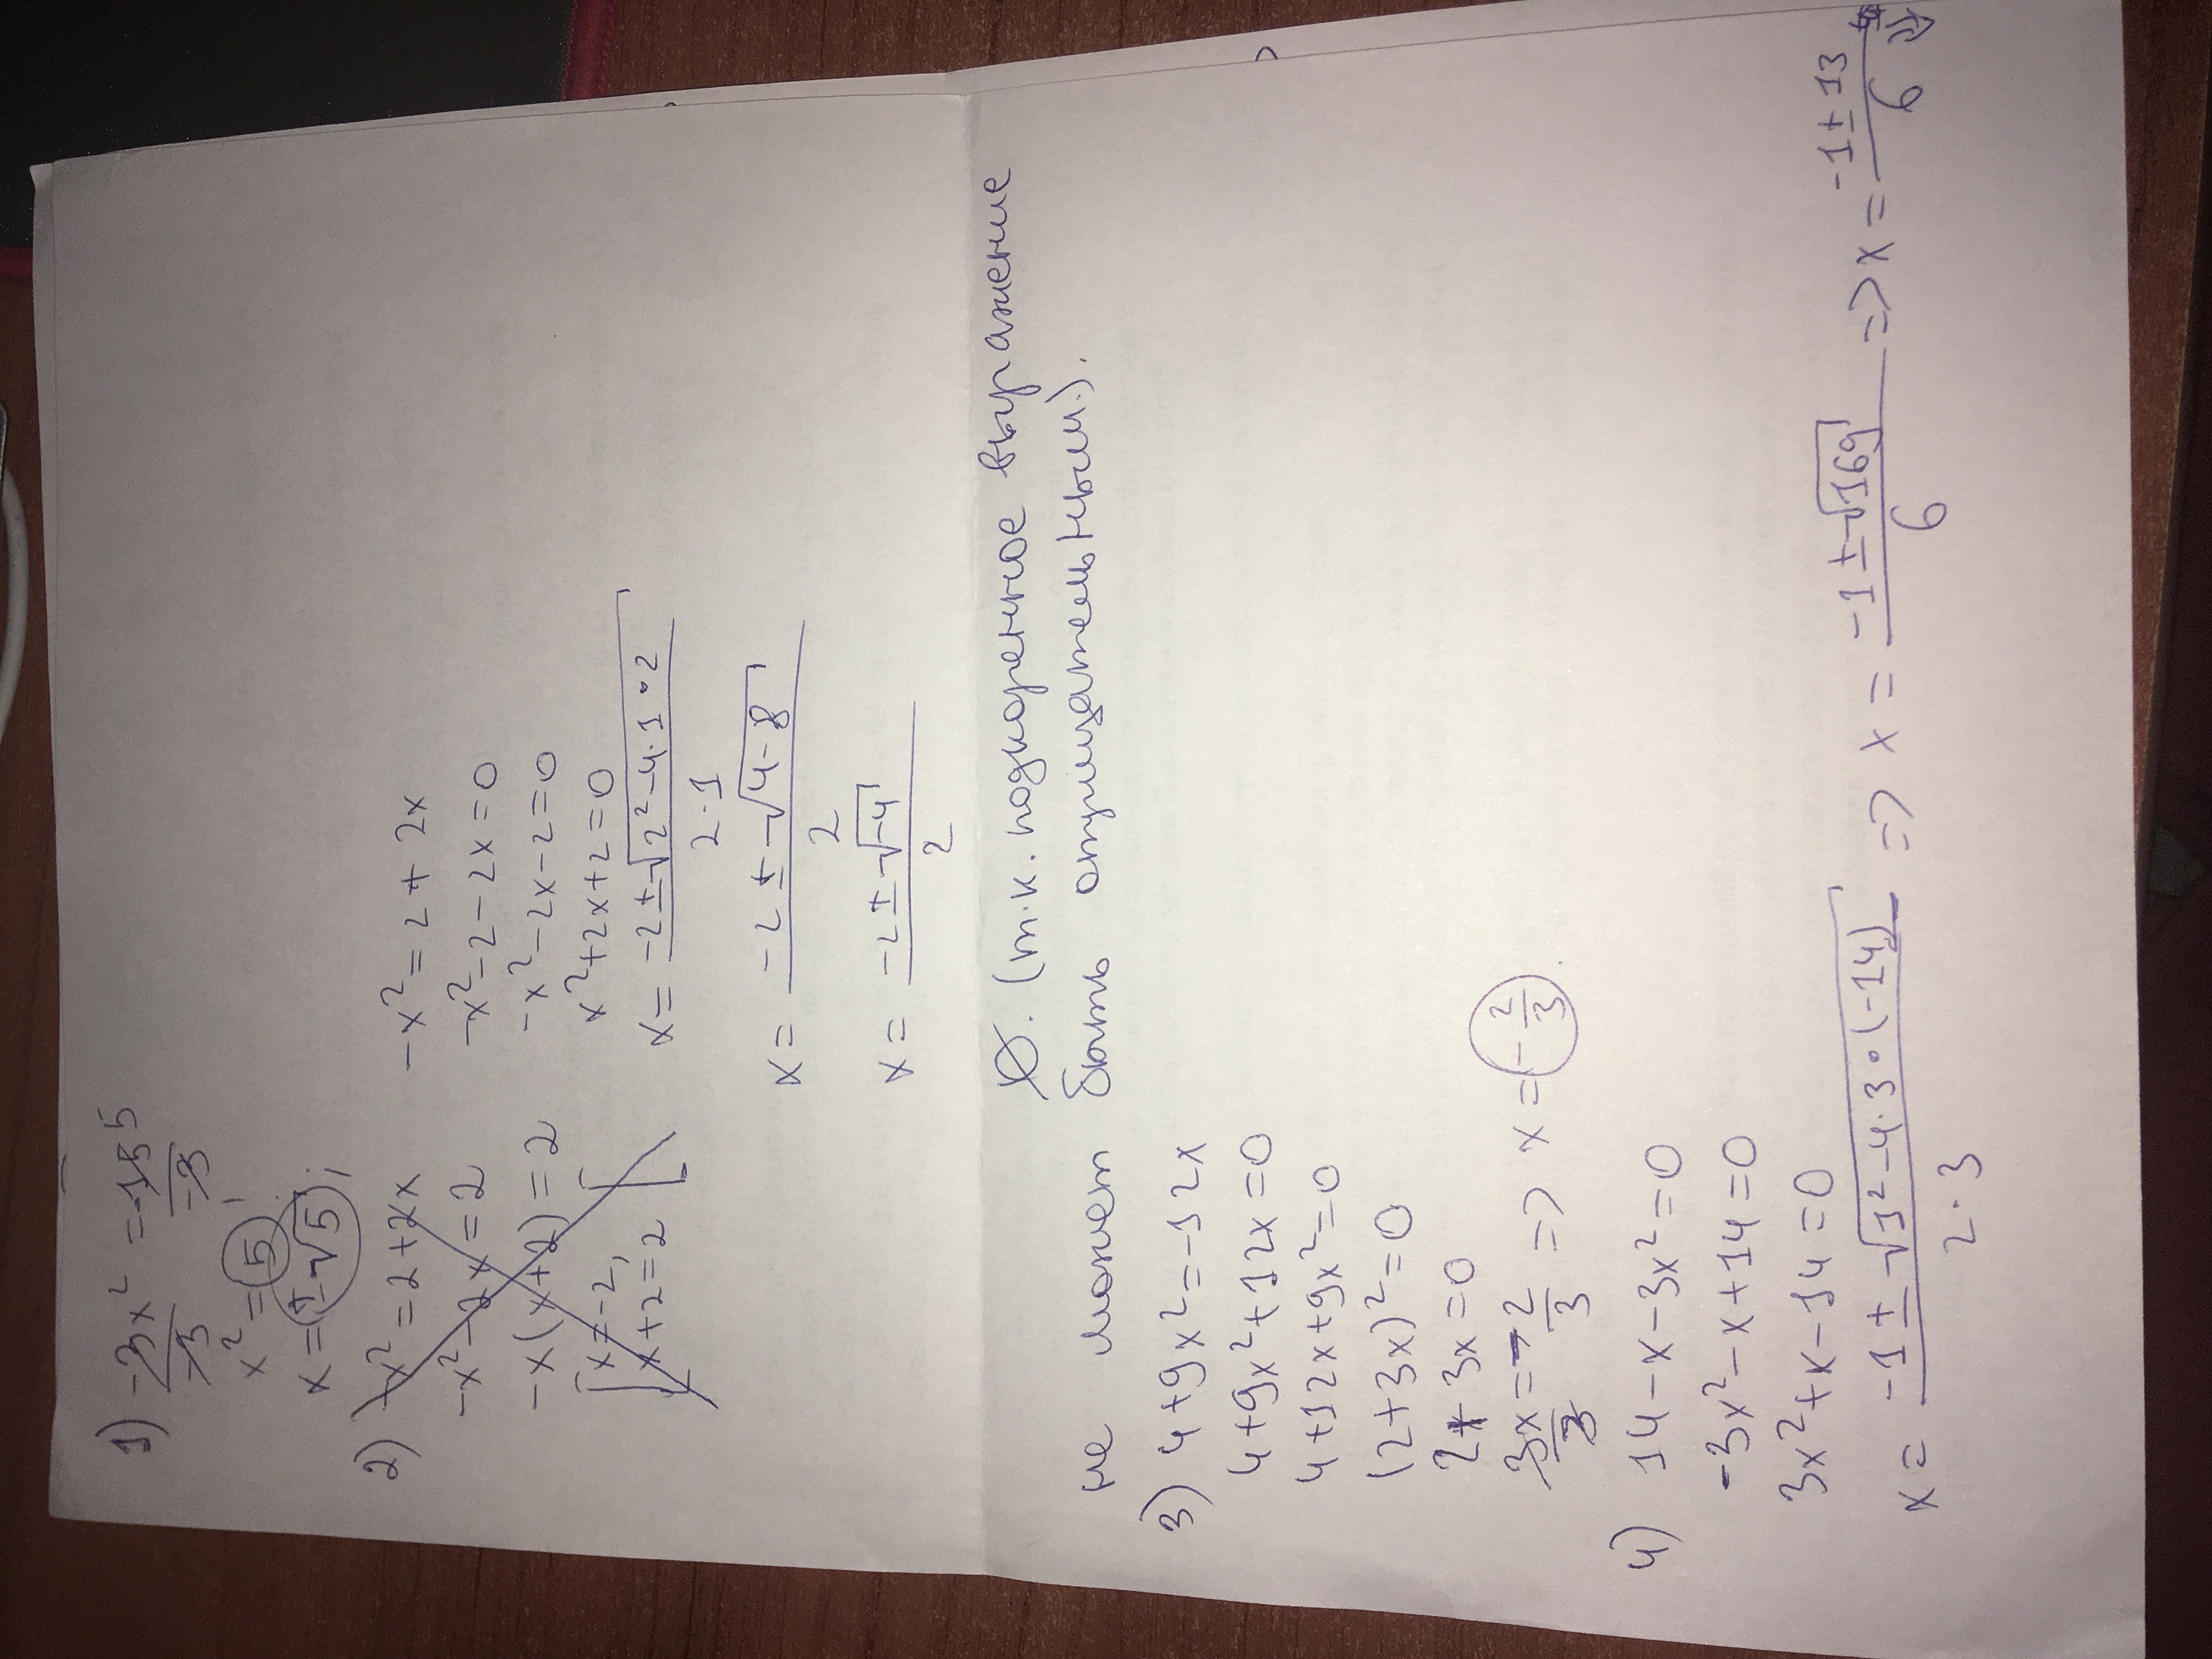 1) -3x² / -3 = -15 5 / -3
x² = 5;
x = ±√5;
2) -x² = 2+2x
-x² - 2x = 2
-x(x+2) = 2
[x = -2;
x+2 = 2
-x² = 2 + 2x
-x² - 2 - 2x = 0
-x² - 2x - 2 = 0
x² + 2x + 2 = 0
x = (-2 ± √(2² - 4·1·2)) / 2·1
x = (-2 ± √(4-8)) / 2
x = (-2 ± √(-4)) / 2
∅. (т.к. подкоренное выражение
не может быть отрицательным).
3) 4+9x² = -12x
4+9x²+12x = 0
4+12x+9x² = 0
(2+3x)² = 0
2+3x = 0
3x / 3 = -2 / 3 => x = -2/3.
4) 14 - x - 3x² = 0
-3x² - x + 14 = 0
3x² + x - 14 = 0
x = (-1 ± √(1² - 4·3·(-14))) / 2·3 => x = (-1 ± √169) / 6 => x = (-1 ± 13) / 6 =>